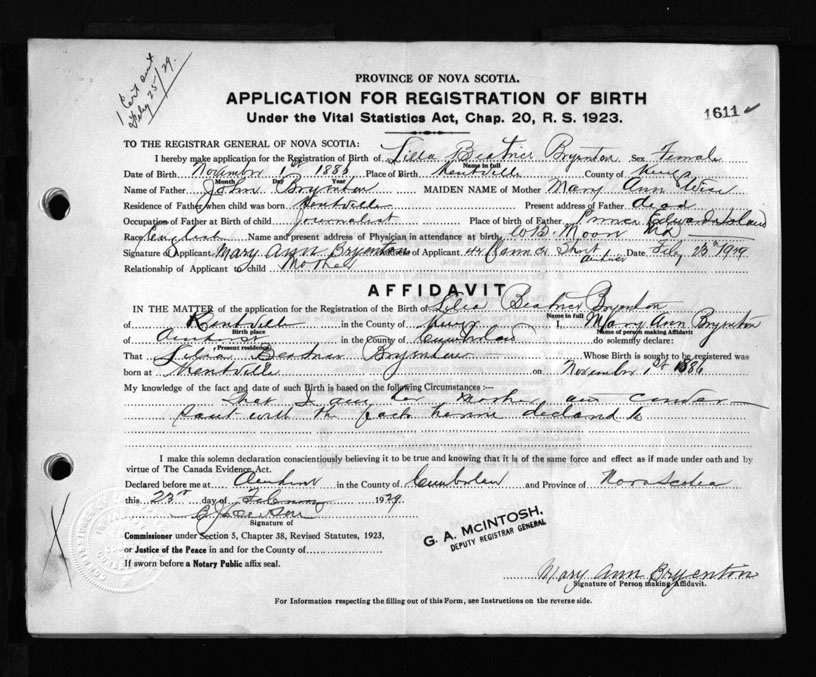 1 Cert sent
Feby 25/29.
PROVINCE OF NOVA SCOTIA.
APPLICATION FOR REGISTRATION OF BIRTH
1611
Under the Vital Statistics Act, Chap. 20, R. S. 1923.
TO THE REGISTRAR GENERAL OF NOVA SCOTIA:
I hereby make application for the Registration of Birth of Lilia Beatrice Bryenton Sex Female
Name in full
Date of Birth November 1st 1886 Place of Birth Kentville County of Kings
Month Day Year
Name of Father John Bryenton MAIDEN NAME of Mother Mary Ann
Residence of Father when child was born Kentville Present address of Father dead
Occupation of Father at Birth of child journalist Place of birth of Father Prince Edward Island
Race English Name and present address of Physician in attendance at birth W.B. Moore Md
Signature of Applicant Mary Ann Bryenton of Applicant Amherst Date Feby 23rd 1929
Relationship of Applicant to child Mother
AFFIDAVIT
IN THE MATTER of the application for the Registration of the Birth of Lilia Beatrice Bryenton
Birth place Name in full
of Kentville in the County of Kings I, Mary Ann Bryenton
Name of person making Affidavit
of Amherst in the County of Cumberland do solemnly declare:
Present residence
That Lilia Beatrice Bryenton Whose Birth is sought to be registered was
born at Kentville on November 1st 1886
My knowledge of the fact and date of such Birth is based on the following Circumstances:—
That I am her Mother, am conver-
sant with the facts herein declared to
I make this solemn declaration conscientiously believing it to be true and knowing that it is of the same force and effect as if made under oath and by
virtue of The Canada Evidence Act.
Declared before me at Amherst in the County of Cumberland and Province of Nova Scotia
this 23rd day of February 1929.
Signature of
G. A. McINTOSH,
DEPUTY REGISTRAR GENERAL
Commissioner under Section 5, Chapter 38, Revised Statutes, 1923,
or Justice of the Peace in and for the County of
If sworn before a Notary Public affix seal.
Mary Ann Bryenton
Signature of Person making Affidavit.
For Information respecting the filling out of this Form, see Instructions on the reverse side.